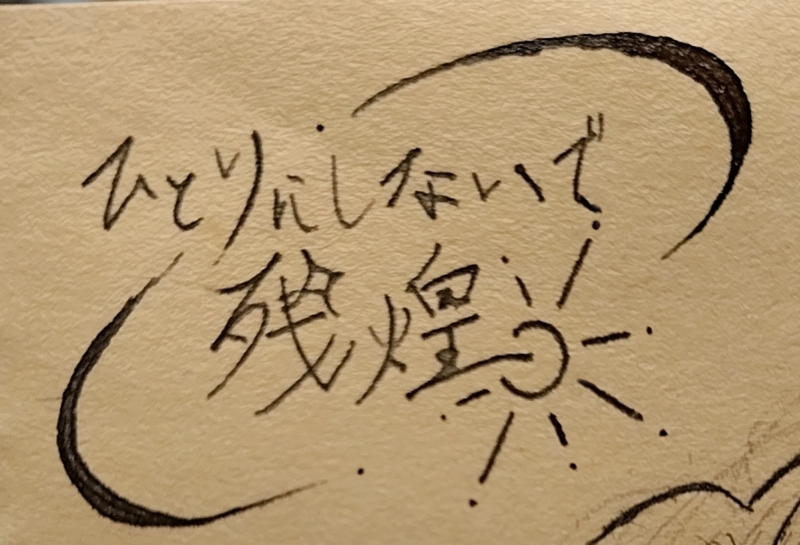 ひとりにしないで
残煌